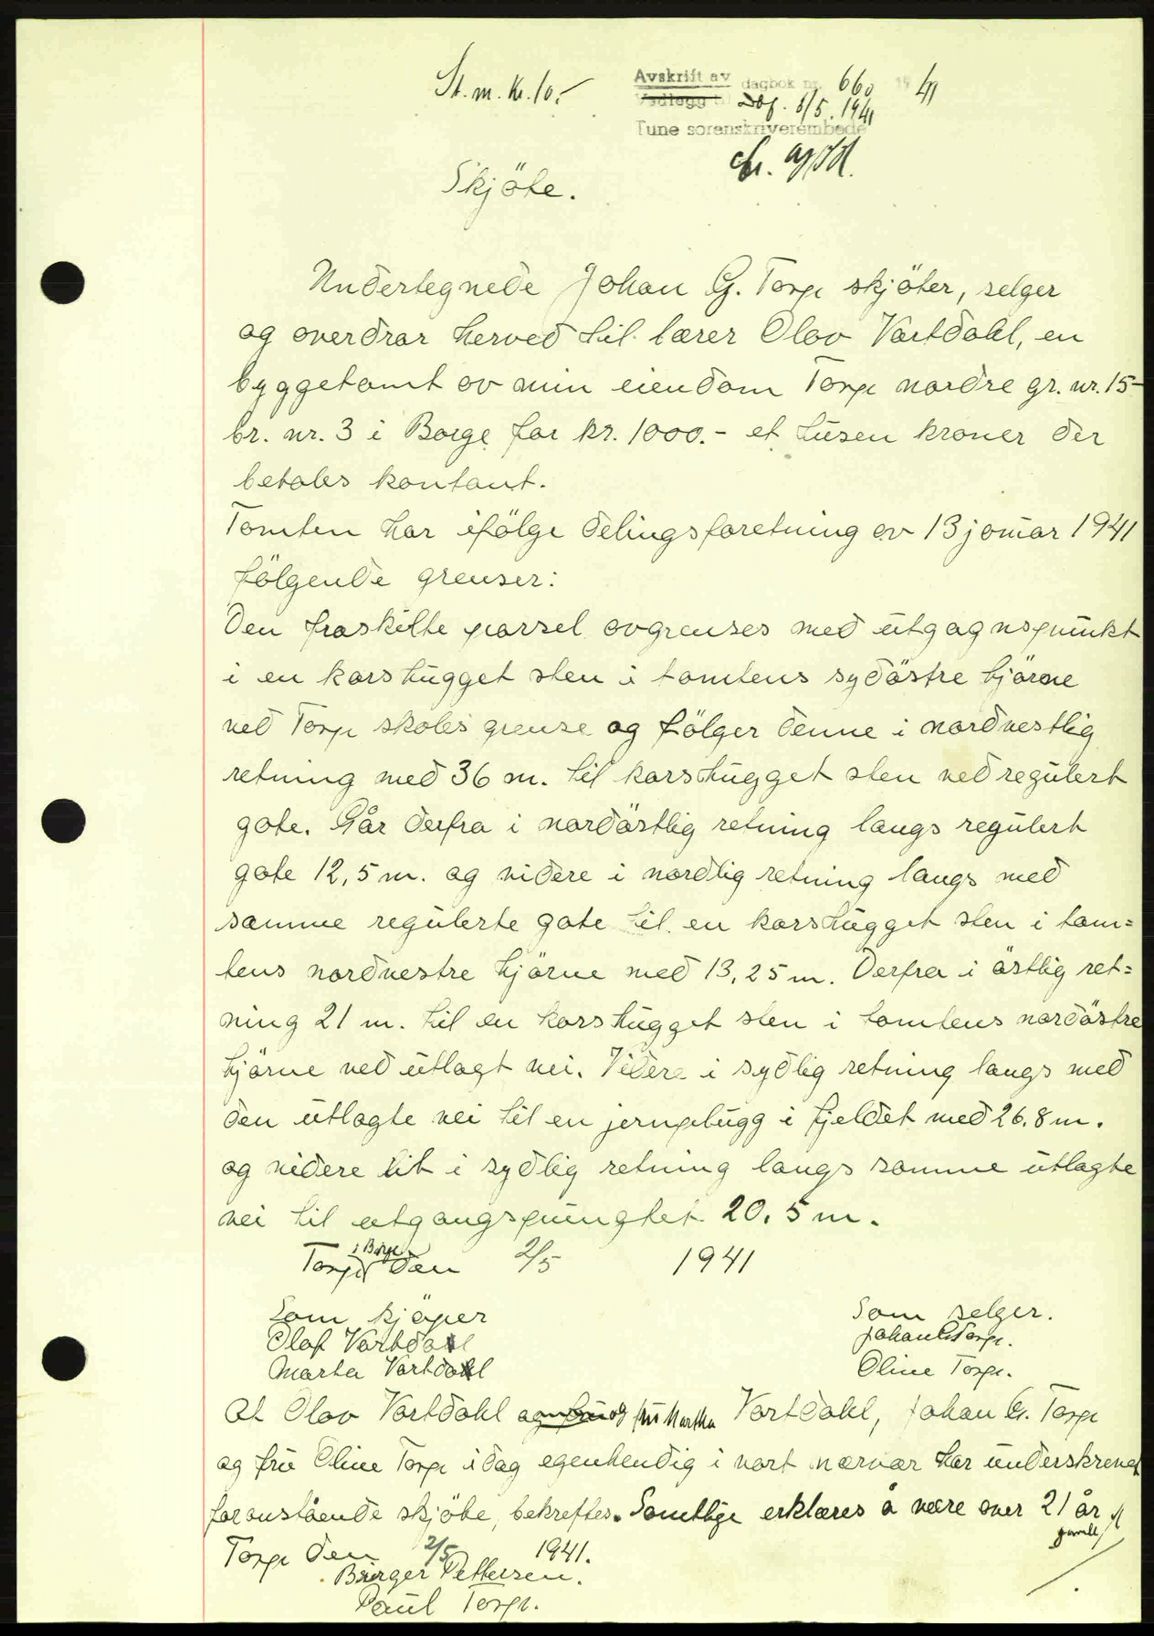 St. m. kr. 10.-
Avskrift av dagbok nr. 660 1941
Vedlegg til Dbf. 6/5. 1941
Tune sorenskriverembede
Skjöte.
Undertegnede Johan G. Torp skjöter, selger
og overdrar herved til lærer Olav Vartdahl, en
byggetomt av min eiendom Torp nordre gr. nr. 15-
br. nr. 3 i Borge for kr. 1000.- et tusen kroner der
betales kontant.
Tomten har ifölge delingsforetning av 13 januar 1941
fölgende grenser:
Den fraskilte parsel avgrenses med utgagnspunkt
i en korshugget sten i tomtens sydöstre hjörne
ved Torp skoles grense og fölger denne i nordvestlig
retning med 36 m. til korshugget sten ved regulert
gate. Går derfra i nordöstlig retning langs regulert
gate 12,5 m. og videre i nordlig retning langs med
samme regulerte gate til en korshugget sten i tom=
tens nordvestre hjörne med 13,25 m. Derfra i östlig ret=
ning 21 m. til en korshugget sten i tomtens nordöstre
hjörne ved utlagt vei. Videre i sydlig retning langs med
den utlagte vei til en jernplugg i fjeldet med 26.8 m.
og videre lit i sydlig retning langs samme utlagte
vei til utgangspungtet 20.5 m.
Torp i Borge den 2/5 1941
Som kjöper Som selger.
Olaf Vartdal Johan G Torp.
Marta Vartdal Oline Torp.
At Olav Vartdahl og fru Martha Vartdahl, Johan G. Torp
og fru Oline Torp idag egenhendig i vort nærvær har underskrevet
foranstående skjöte, bekreftes. Samtlige erklæres å være over 21 år
gamle
Torp den 2/5 1941.
Birger Pettersen.
Paul Torp.